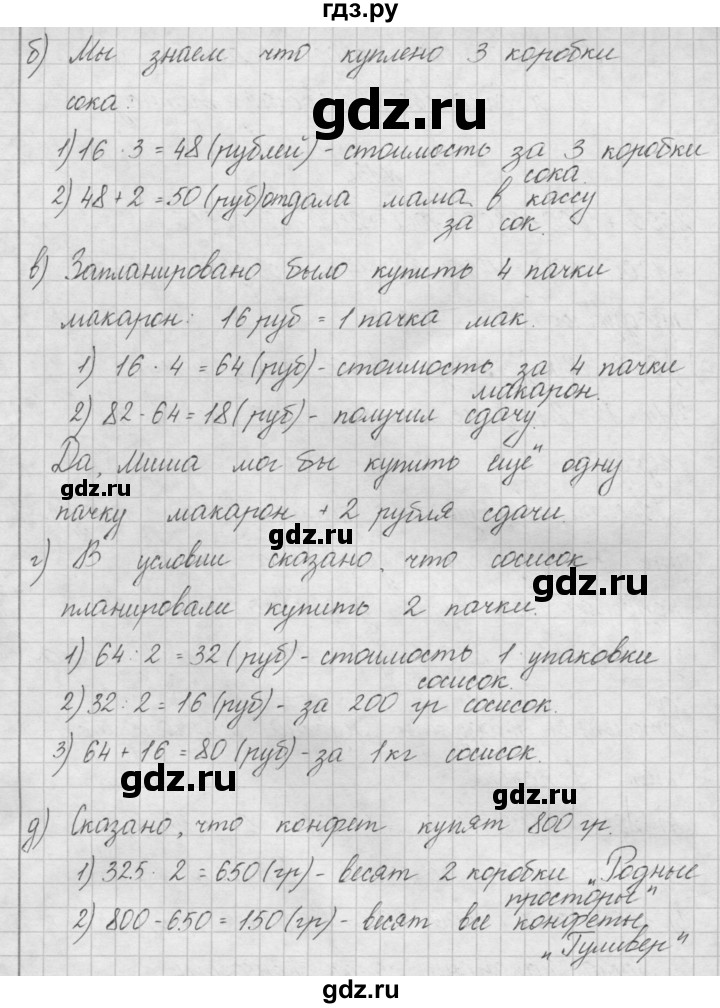 гдз.ру
б) Мы знаем что куплено 3 коробки
сока:
gdz.ru
1) 16 · 3 = 48 (рублей) - стоимость за 3 коробки
сока.
2) 48 + 2 = 50 (руб) отдала мама в кассу
за сок.
в) Запланировано было купить 4 пачки
макарон: 16 руб = 1 пачка мак.
1) 16 · 4 = 64 (руб) - стоимость за 4 пачки
макарон.
2) 82 - 64 = 18 (руб) - получил сдачу.
Да, Миша мог бы купить ещё одну
gdz.ru
пачку макарон + 2 рубля сдачи.
gdz.ru
г) В условии сказано, что сосисок
gdz.ru
планировали купить 2 пачки.
1) 64 : 2 = 32 (руб) - стоимость 1 упаковки
сосисок.
2) 32 : 2 = 16 (руб) - за 200 гр сосисок.
3) 64 + 16 = 80 (руб) - за 1 кг сосисок.
gdz.ru
gdz.ru
д) Сказано, что конфет купят 800 гр.
1) 325 · 2 = 650 (гр) - весят 2 коробки „Родные
просторы"
2) 800 - 650 = 150 (гр) - весят все конфеты
„Гуливер"